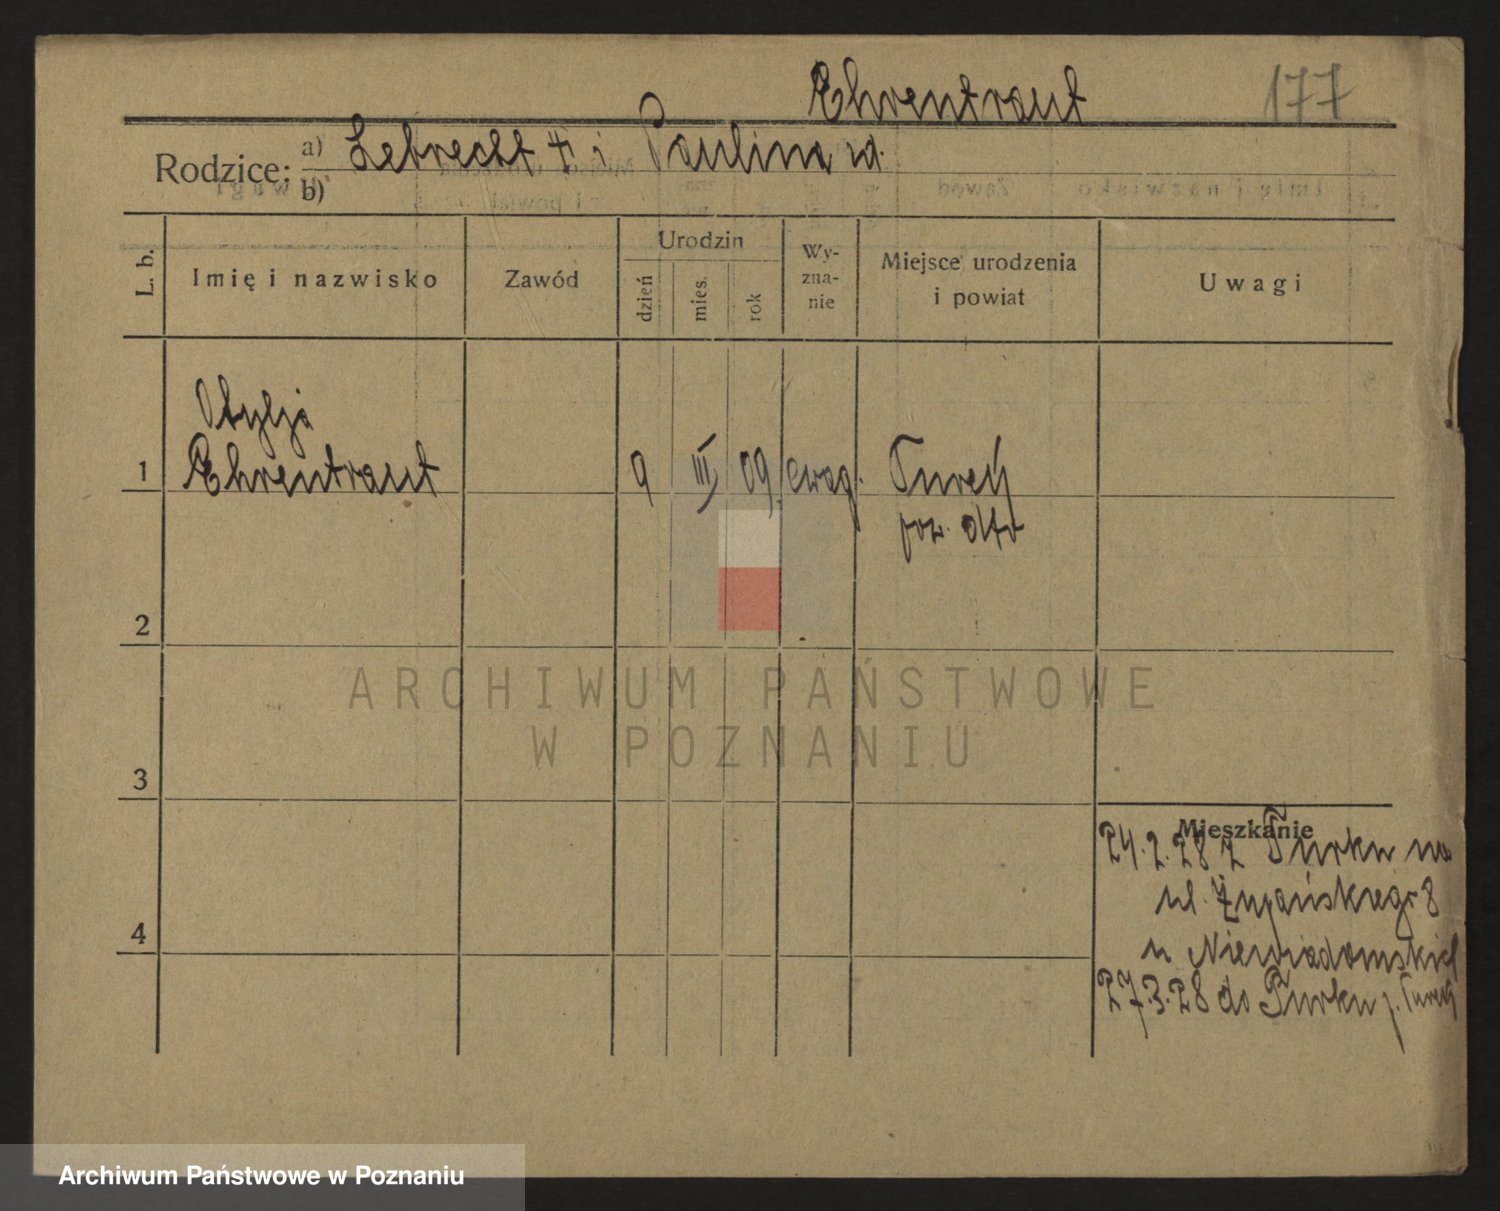 Ehrentraut 177
Rodzice: a) Lebrecht † i Paulina w.
b)
L. b. Imię i nazwisko Zawód Urodzin dzień mies. rok Wy-zna-nie Miejsce urodzenia i powiat Uwagi
Otylja
1 Ehrentraut 9 III 09 ewag. Turek
pow. dto
2
ARCHIWUM PAŃSTWOWE
W POZNANIU
3
Mieszkanie
24.2.28 z Turku na
ul. Żupańskiego 8
u Niewiadomskich
4
27.3.28 do Turku p. Turek
Archiwum Państwowe w Poznaniu